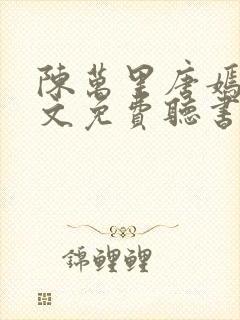 陳萬里唐嫣
文免費聽書
錦鯉鯉